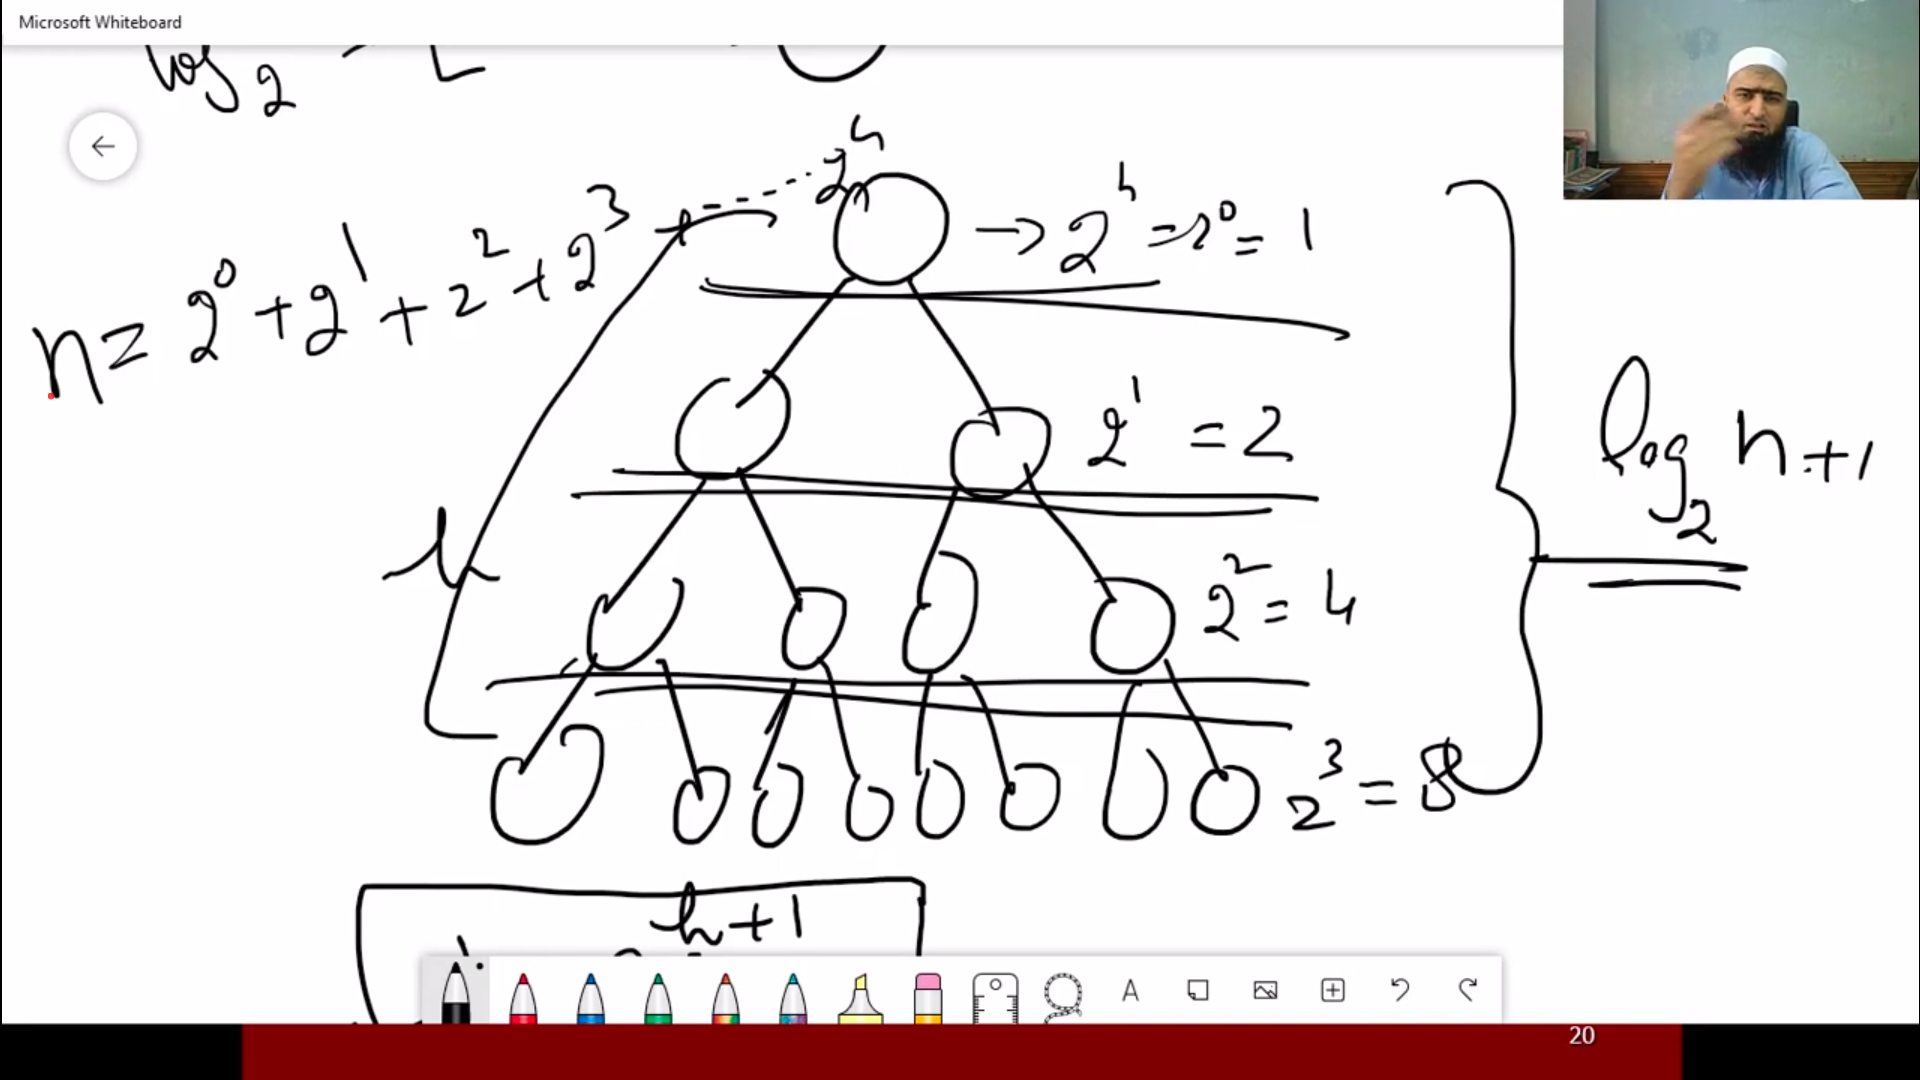 Microsoft Whiteboard
log₂
n = 2⁰ + 2¹ + 2² + 2³ + ----- 2ʰ
→ 2ʰ = 2⁰ = 1
2¹ = 2
log₂ n+1
h
2² = 4
2³ = 8
h+1
A
20